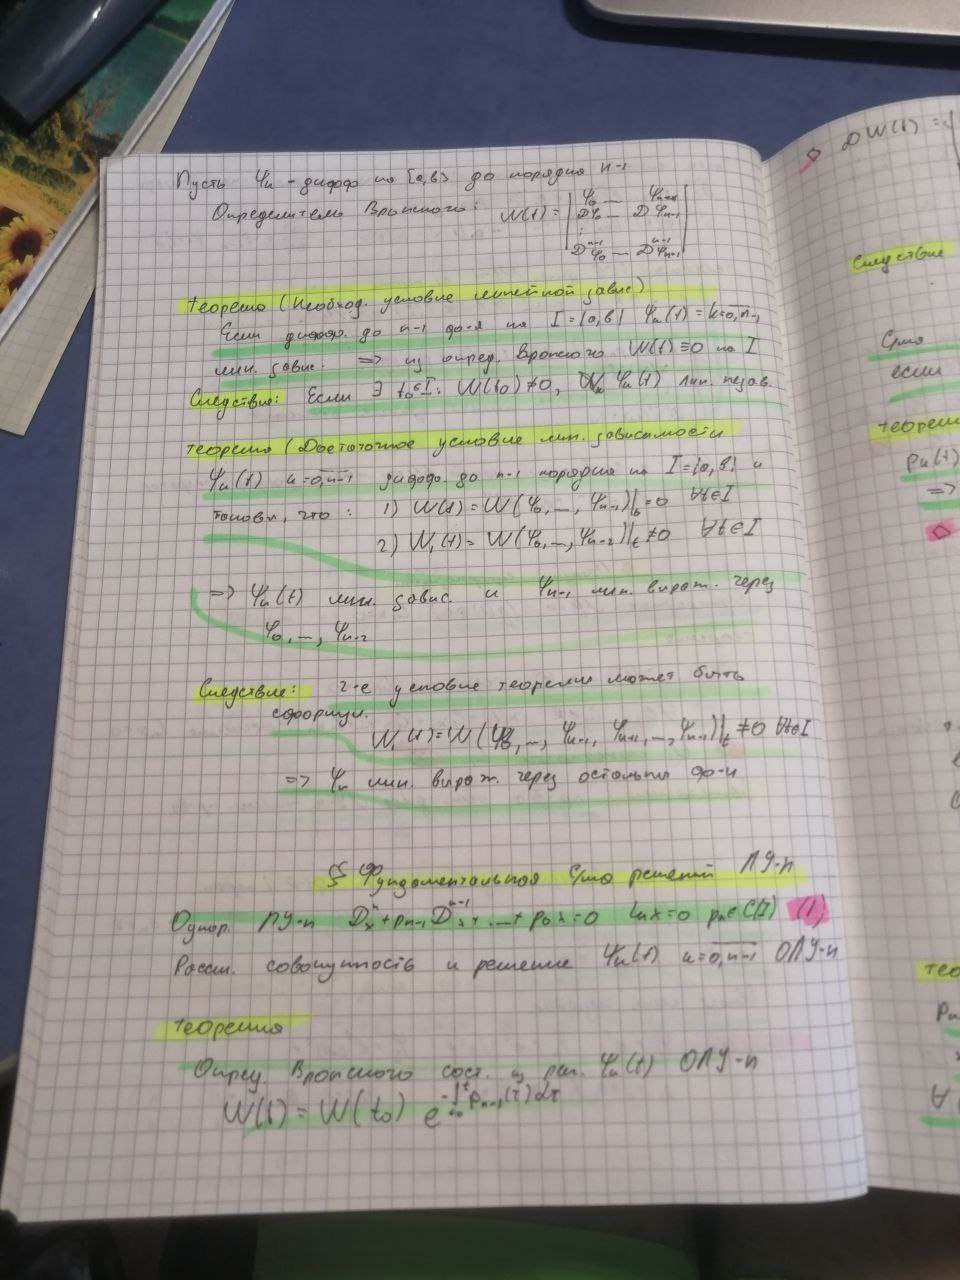 Пусть φₖ - дифф на [a,b) до порядка n-1
Определитель Вронского: W(t) = | φ₀ ... φₙ₋₁
Dφ₀ ... Dφₙ₋₁
⋮
Dⁿ⁻¹φ₀ ... Dⁿ⁻¹φₙ₋₁ |
Теорема (Необход. условие линейной завис)
Если дифф. до n-1 ф-я на I = |a,b| φₖ(t) = k=0,n-1
лин. завис. => из опред. Вронского W(t) ≡ 0 на I
Следствие: Если ∃ t₀∈I: W(t₀) ≠ 0, φₖ(t) лин. незав.
теорема (Достаточное условие лин. зависимости
φₖ(t) k=0,n-1 дифф до n-1 порядка на I=|a,b| и
таковы, что: 1) W(t) = W(φ₀, ..., φₙ₋₁)|ₜ = 0 ∀t∈I
2) W₁(t) = W(φ₀, ..., φₙ₋₂)|ₜ ≠ 0 ∀t∈I
=> φₖ(t) лин. завис. и φₙ₋₁ лин. выраж. через
φ₀, ..., φₙ₋₂
Следствие: 2-е условие теоремы может быть
сформул.
W₁(t) = W(φ₀, ..., φₖ₋₁, φₖ₊₁, ..., φₙ₋₁)|ₜ ≠ 0 ∀t∈I
=> φₖ лин. выраж. через остальные ф-и
§ Фундаментальная с-ма решений ЛУ-n
Однор. ЛУ-n Dⁿx + pₙ₋₁Dⁿ⁻¹x + ... + p₀x = 0 Lₙx = 0 pₖ∈C(I) (1)
Рассм. совокупность n решение φₖ(t) k=0,n-1 ОЛУ-n
теорема
Опред. Вронского сост. из реш. φₖ(t) ОЛУ-n
W(t) = W(t₀) e^{-∫ₜ₀ᵗ pₙ₋₁(τ)dτ}
DW(t) =
Следствие
С-ма
если
теорем
pₖ(t)
=>
тео
∀